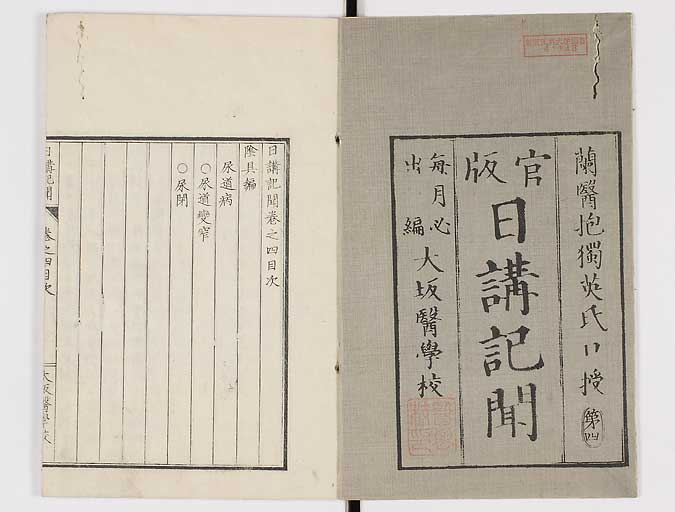 蘭醫抱獨英氏口授 第四
官版
日講記聞
每月必出編
大坂醫學校
日講記聞卷之四目次
陰具編
尿道病
○尿道變窄
○尿閉
日講記聞
卷之四目次
大坂醫學校